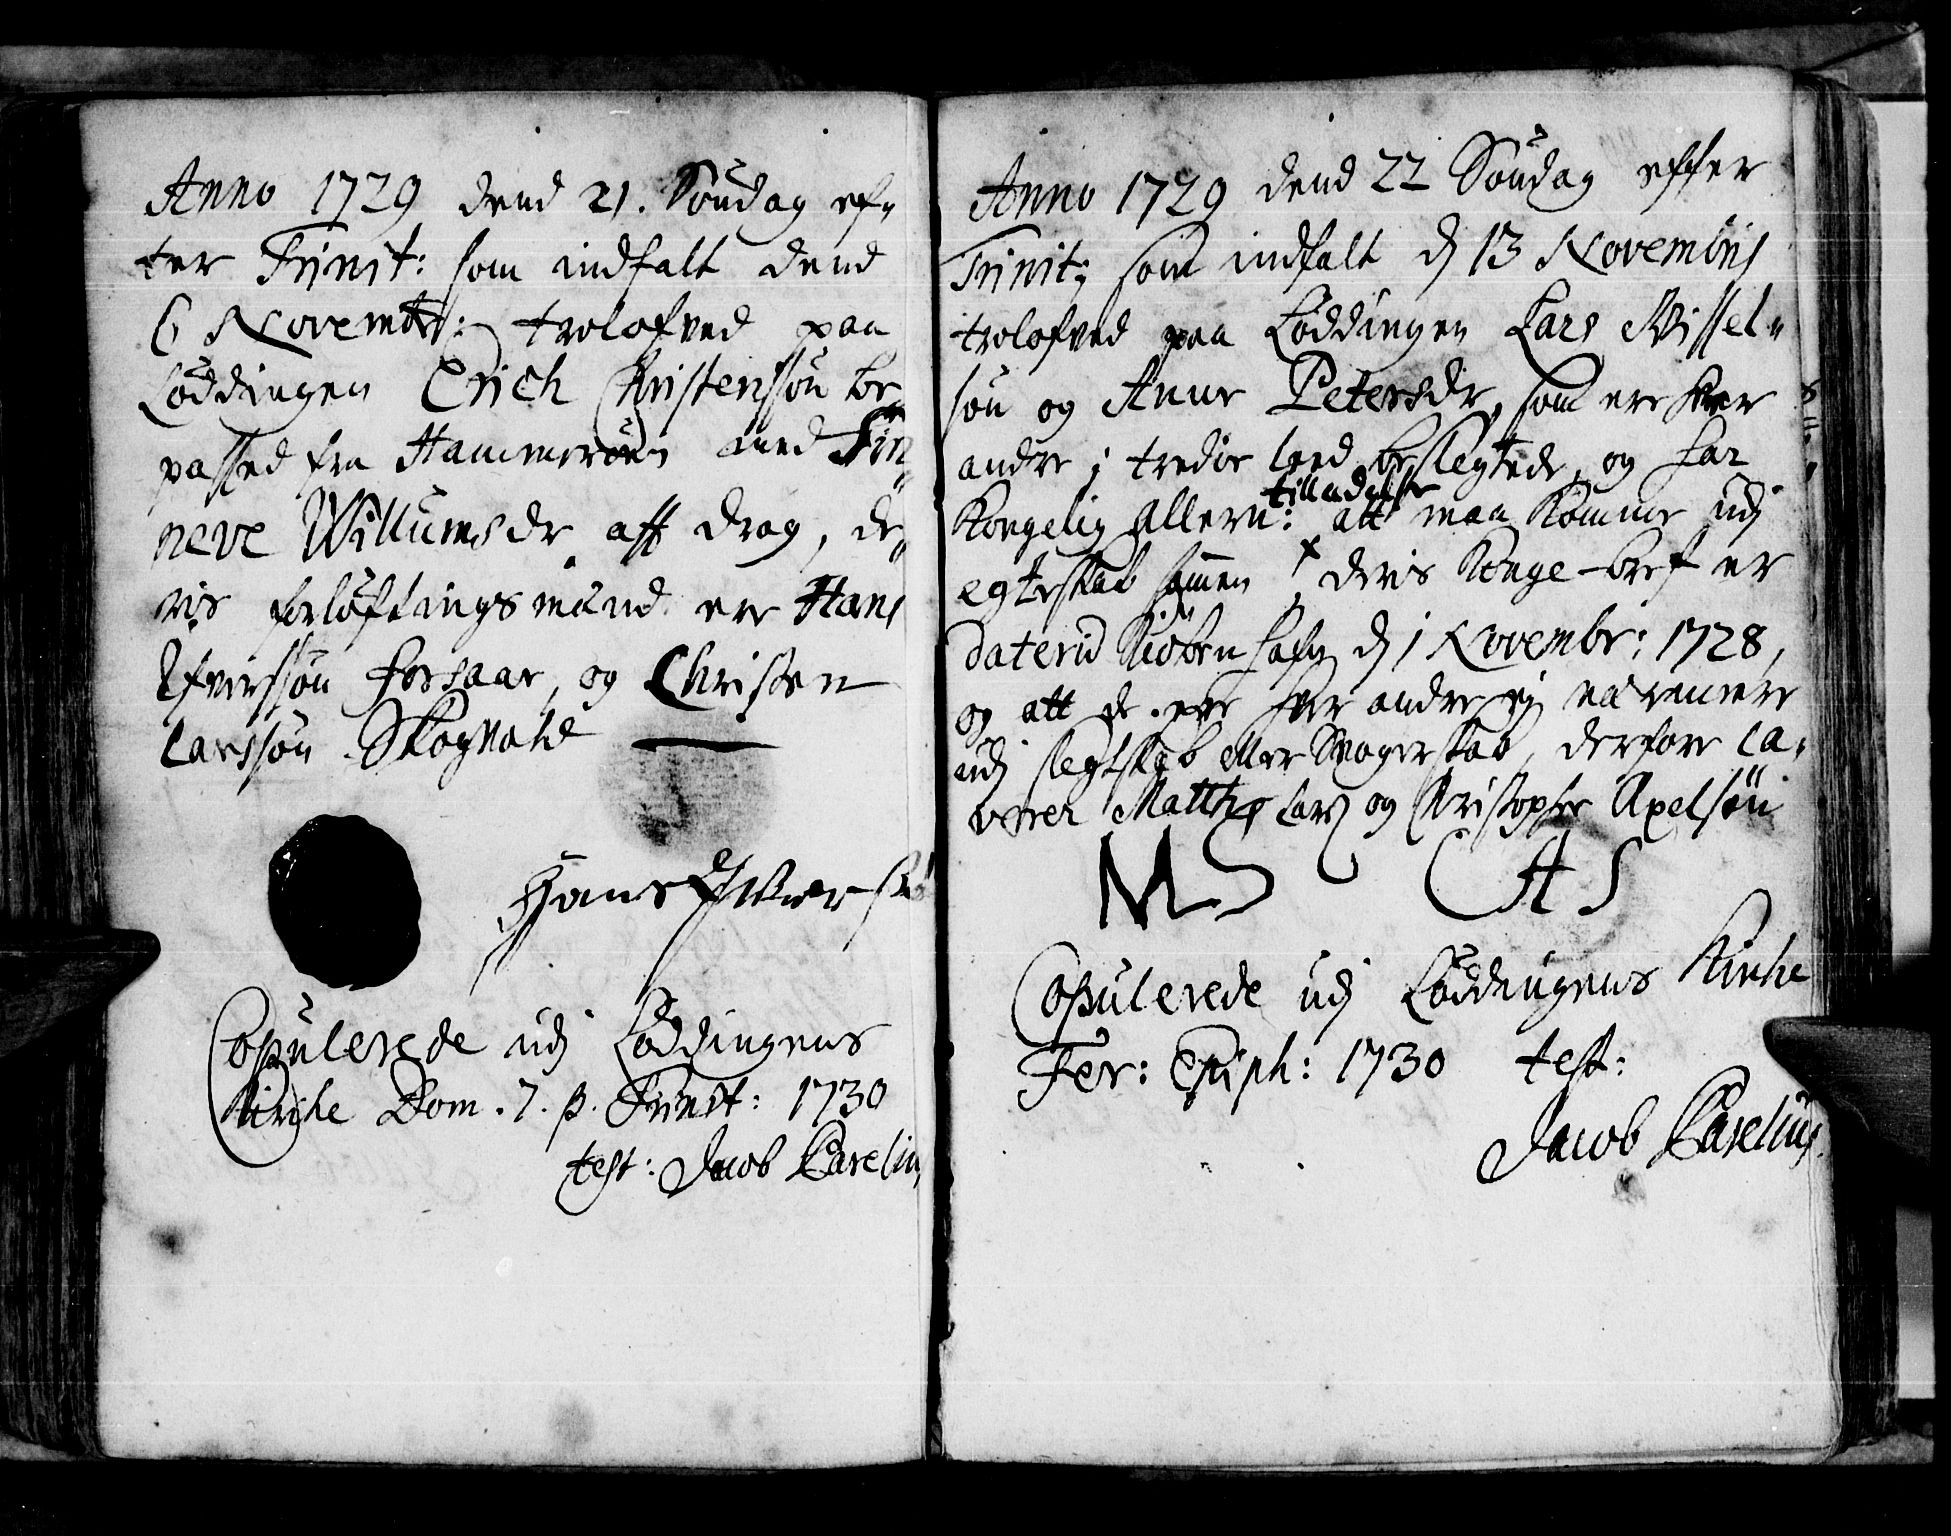 Anno 1729 dend 21. Søndag ef„
ter Trinit: som indfalt dend
6 Novembr: trolofved paa
Løddingen Erich Christenssøn be„
passed fra Hammerøen med Sin„
neve Willumsdr aff Drag, de„
ris forløftingsmænd ere Hans
Efverssøn Forsaae, og Christen
Larssøn Skognohe
Hans
Copulerede udj Løddingens
Kirche Dom. 7. p. Trinit: 1730
test: Jacob Parelius
Anno 1729 dend 22 Søndag efter
Trinit: som indfalt d 13 Novembris
trolofved paa Løddingen Lars Nissel„
søn og Anne Petersdr, som ere hver
andre j tredie leed beslegtede, og har
tilladelse
Kongelig Allern: att maa komme udj
egteskab sammen deris Konge-bref er
daterid Kiøbenhafn d 1 Novembr: 1728,
og att de ere hver andre ej nærmere
udj slegtskab eller Svogerskab, derfore ca„
verer Matthis Lars og Christopher Axelsøn
MS CAS
Copulerede udj Løddingens Kirche
Fer: Epiph: 1730 test:
Jacob Parelius.